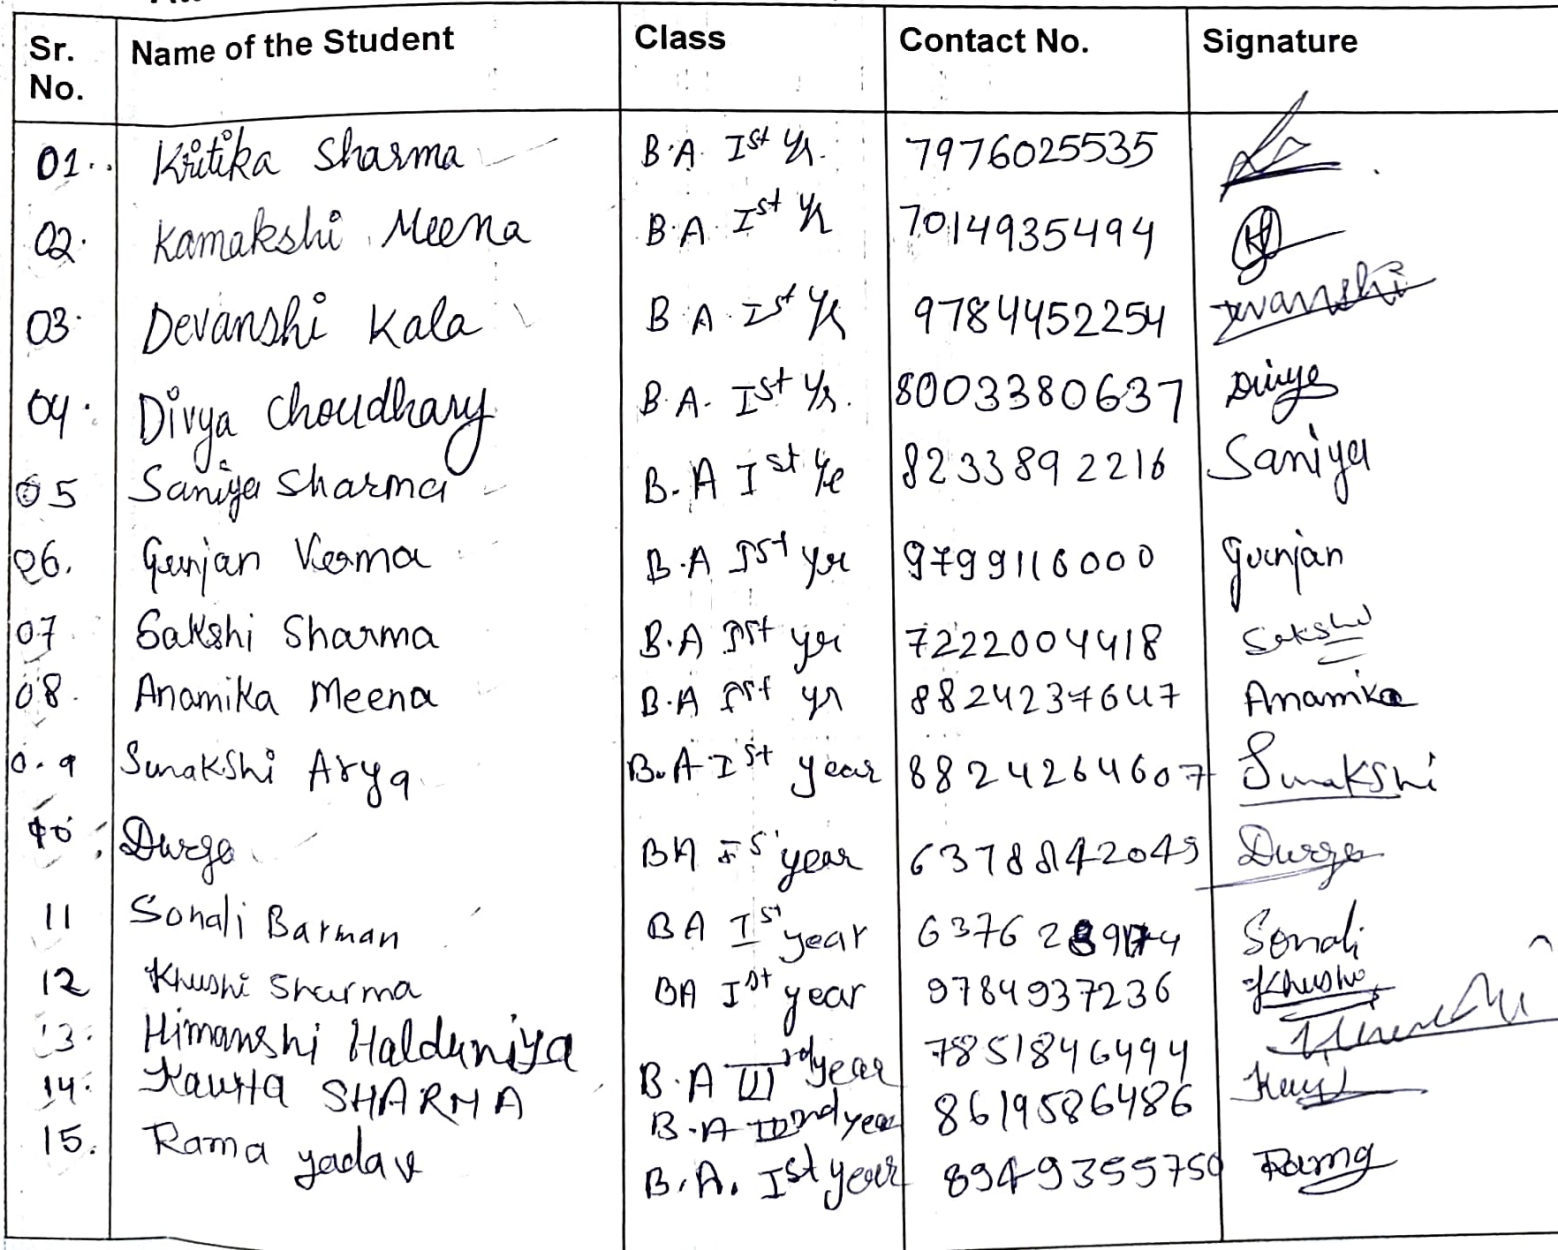 Sr. No. Name of the Student Class Contact No. Signature
01. Kritika Sharma B.A. Ist Yr. 7976025535
02. Kamakshi Meena B.A. Ist Yr 7014935494
03. Devanshi Kala B.A. Ist Yr 9784452254 Devanshi
04. Divya Choudhary B.A. Ist Yr. 8003380637 Divya
05 Saniya Sharma B.A Ist Ye 8233892216 Saniya
06. Gunjan Verma B.A Ist yr 9799116000 Gunjan
07 Sakshi Sharma B.A Ist yr 7222004418 Sakshi
08. Anamika Meena B.A Ist yr 8824237647 Anamika
0.9 Sunakshi Arya B.A Ist year 8824264607 Sunakshi
10 Durga BA Is year 6378842049 Durga
11 Sonali Barman BA Ist year Sonali
12 Khushi Sharma BA Ist year 9784937236 Khushi
13. Himanshi Halduniya B.A III rd year 7851846494
14. SHARMA B.A nd year 8619586486
15. Rama yadav B.A. Ist year 8949355750 Rama